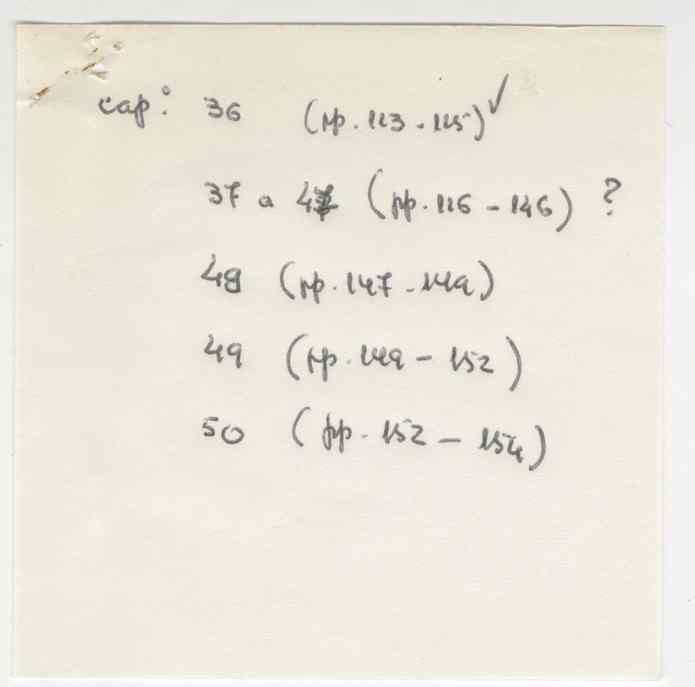 cap: 36 (pp. 113 - 115) ✓
37 a 47 (pp. 116 - 146) ?
48 (pp. 147 - 149)
49 (pp. 149 - 152)
50 (pp. 152 - 154)